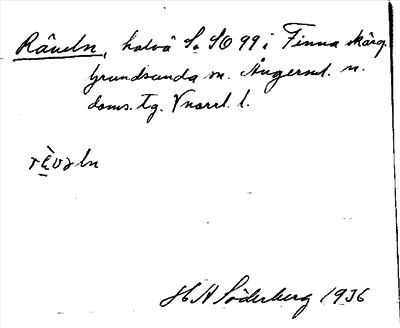 Råveln, halvö S. SO 99 i Finna skärg.
Grundsunda sn. Ångerml. n.
doms. tg. Vnorrl. l.
rèvəln
H A Söderberg 1936